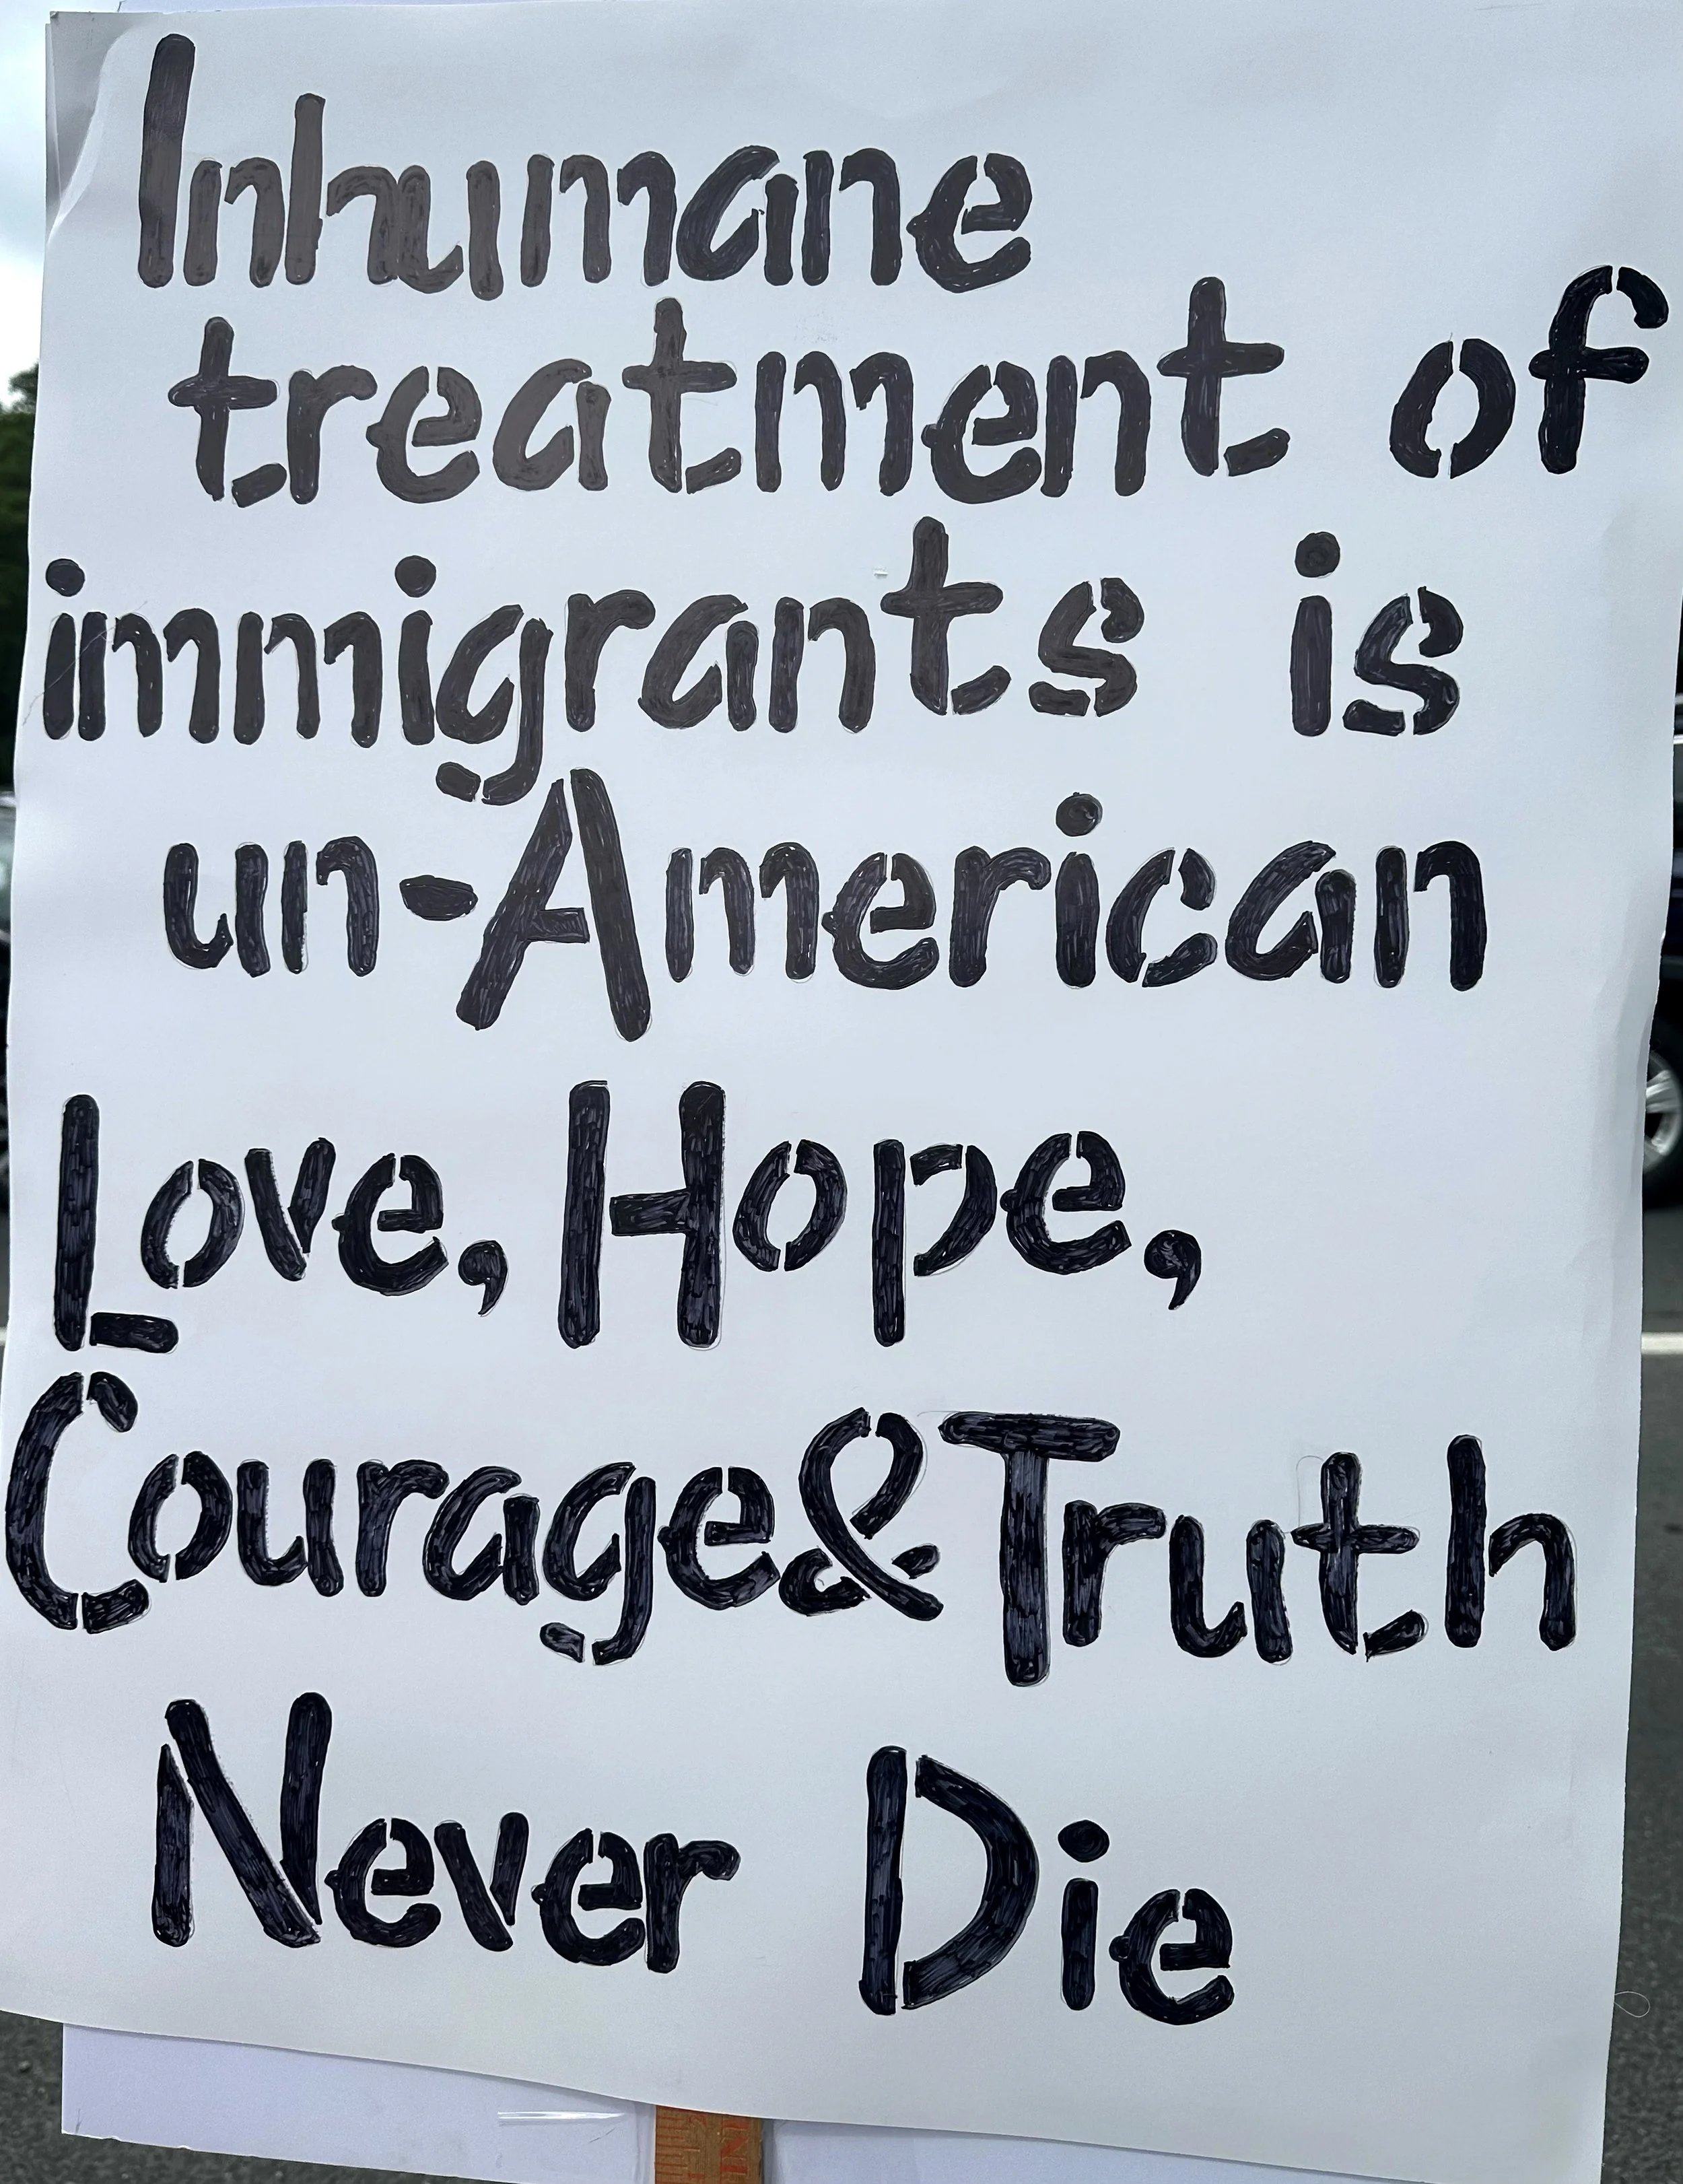 Inhumane
treatment of
immigrants is
un-American
Love, Hope,
Courage & Truth
Never Die